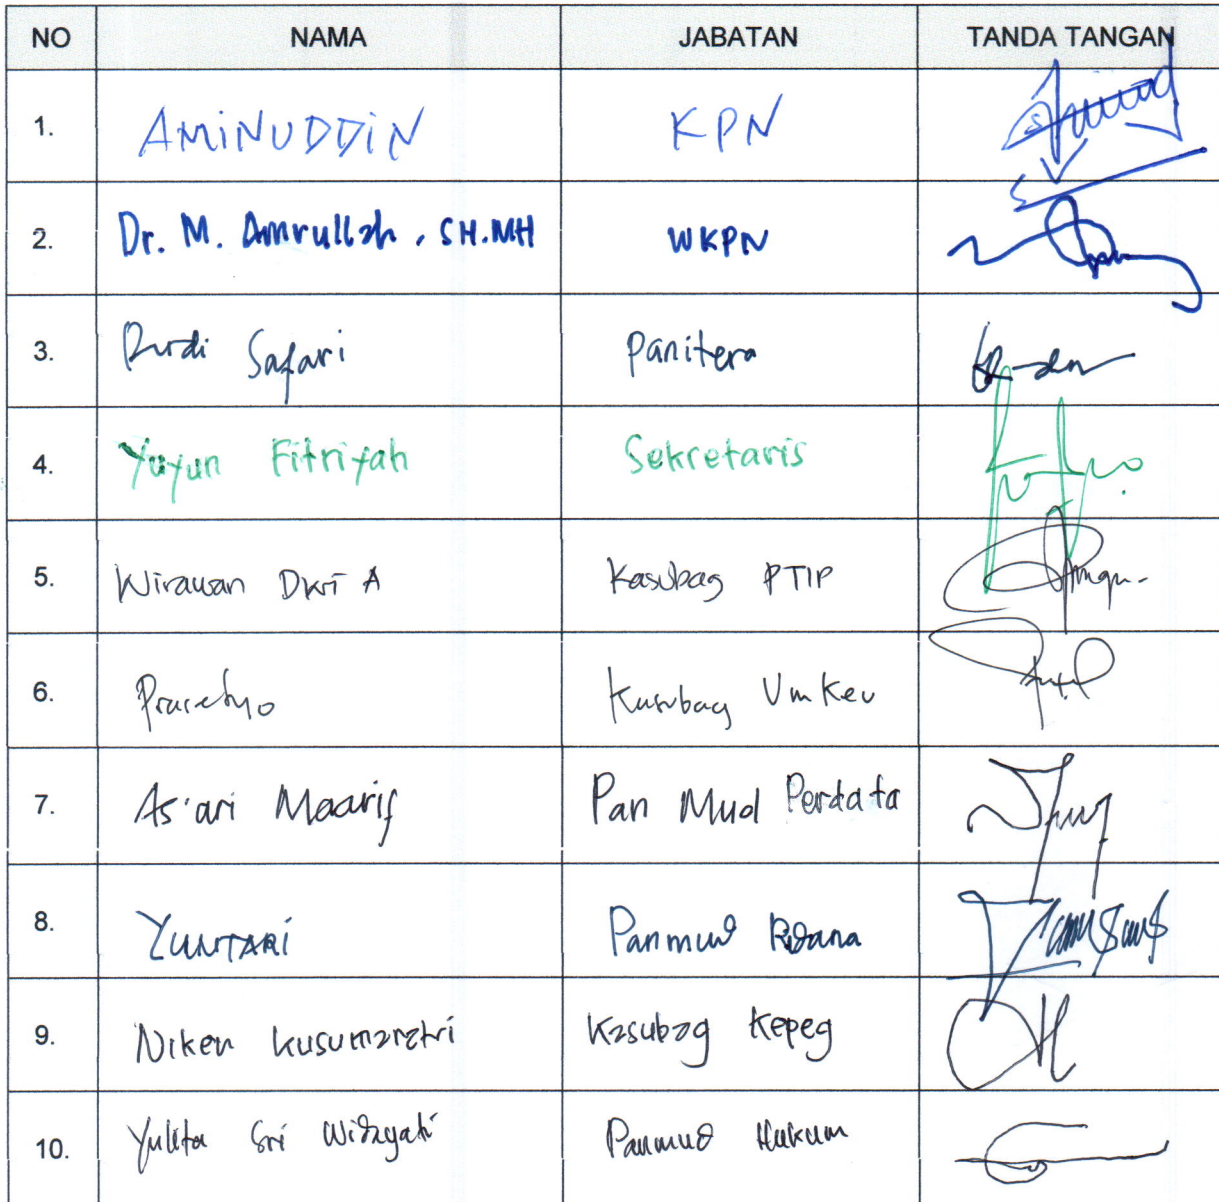 NO NAMA JABATAN TANDA TANGAN
1. AMINUDDIN KPN
2. Dr. M. Amrullah, SH.MH WKPN
3. Rudi Safari Panitera
4. Yuyun Fitriyah Sekretaris
5. Wirawan Dwi A Kasubag PTIP
6. Prasetyo Kasubag Um Keu
7. As'ari Maarif Pan Mud Perdata
8. YUNTARI Panmud Pidana
9. Niken Kusumaratri Kasubag Kepeg
10. Yulita Sri Widayati Panmud Hukum